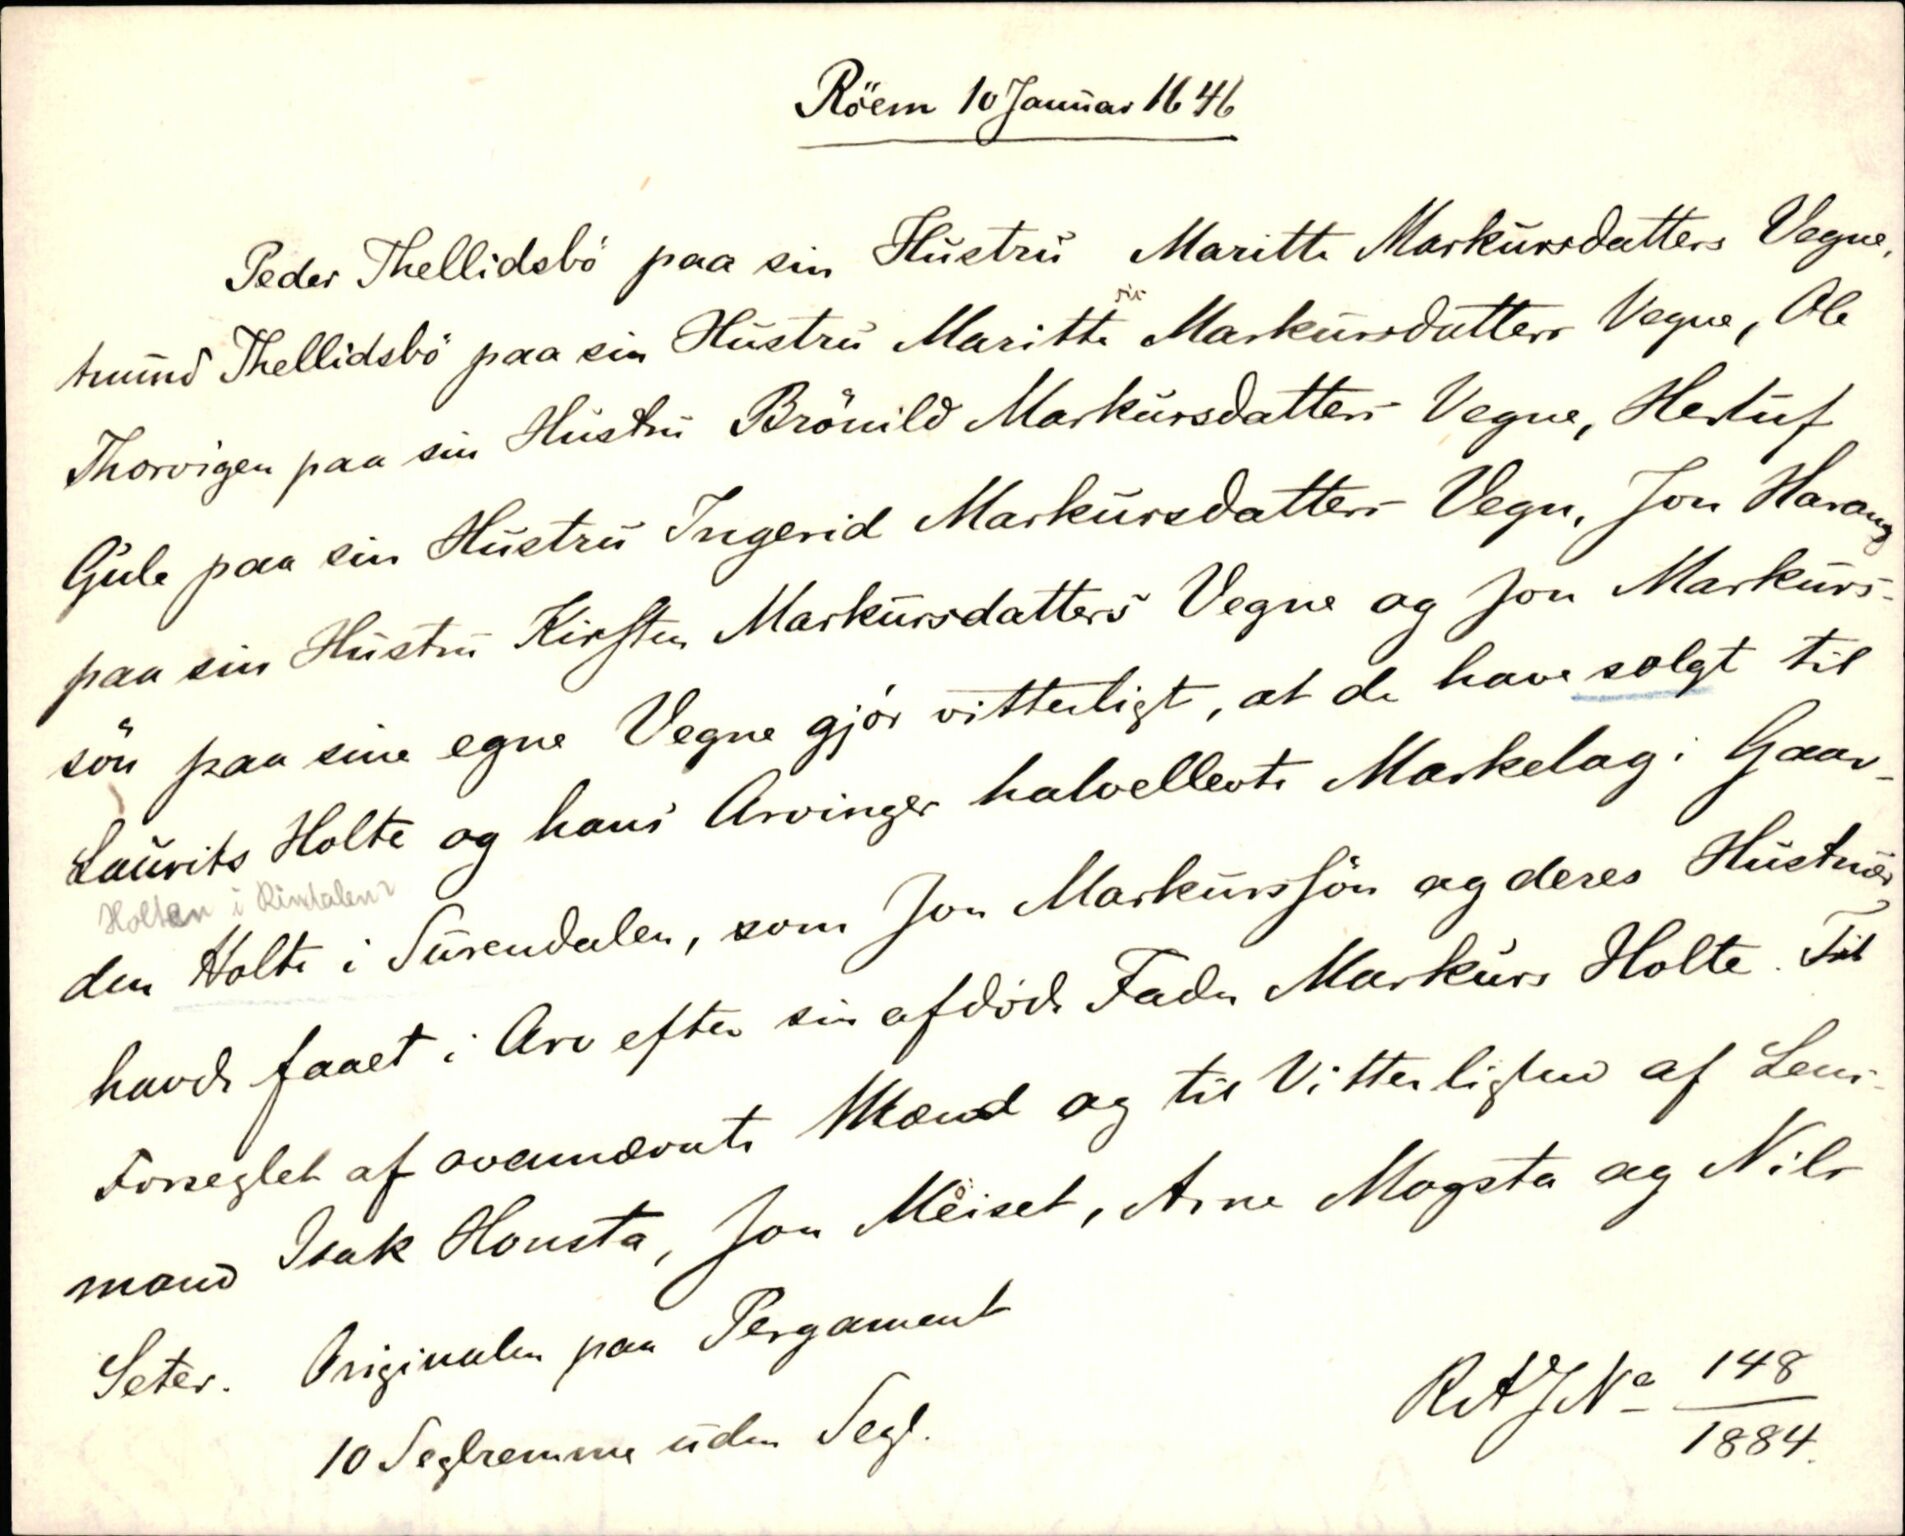 Röem 10 Januar 1646
Peder Thellidsbö paa sin Hustru Maritte Markursdatters Vegne,
Amund Thellidsbö paa sin Hustru Maritte sic Markursdatters Vegne, Ole
Thorvigen paa sin Hustru Brönild Markursdatters Vegne, Herluf
Gule paa sin Hustru Ingerid Markursdatters Vegn, Jon Harang
paa sin Hustru Kirsten Markursdatters Vegne og Jon Markurs-
sön paa sine egne Vegne gjör vitterligt, at de have solgt til
Laurits Holte og hans Arvinger halvellevte Markelag i Gaar-
Holten i Rindalen?
den Holte i Surendalen, som Jon Markurssön og deres Hustruer
havde faaet i Arv efter sin afdöde Fader Markurs Holte. Til
Forseglet af ovennævnte Mænd og til Vitterlighed af Lens-
mand Isak Honsta, Jon Möiset, Arne Mogsta og Nils
Seter. Originalen paa Pergament
10 Seglremme uden Segl.
RAJNo 148
1884.